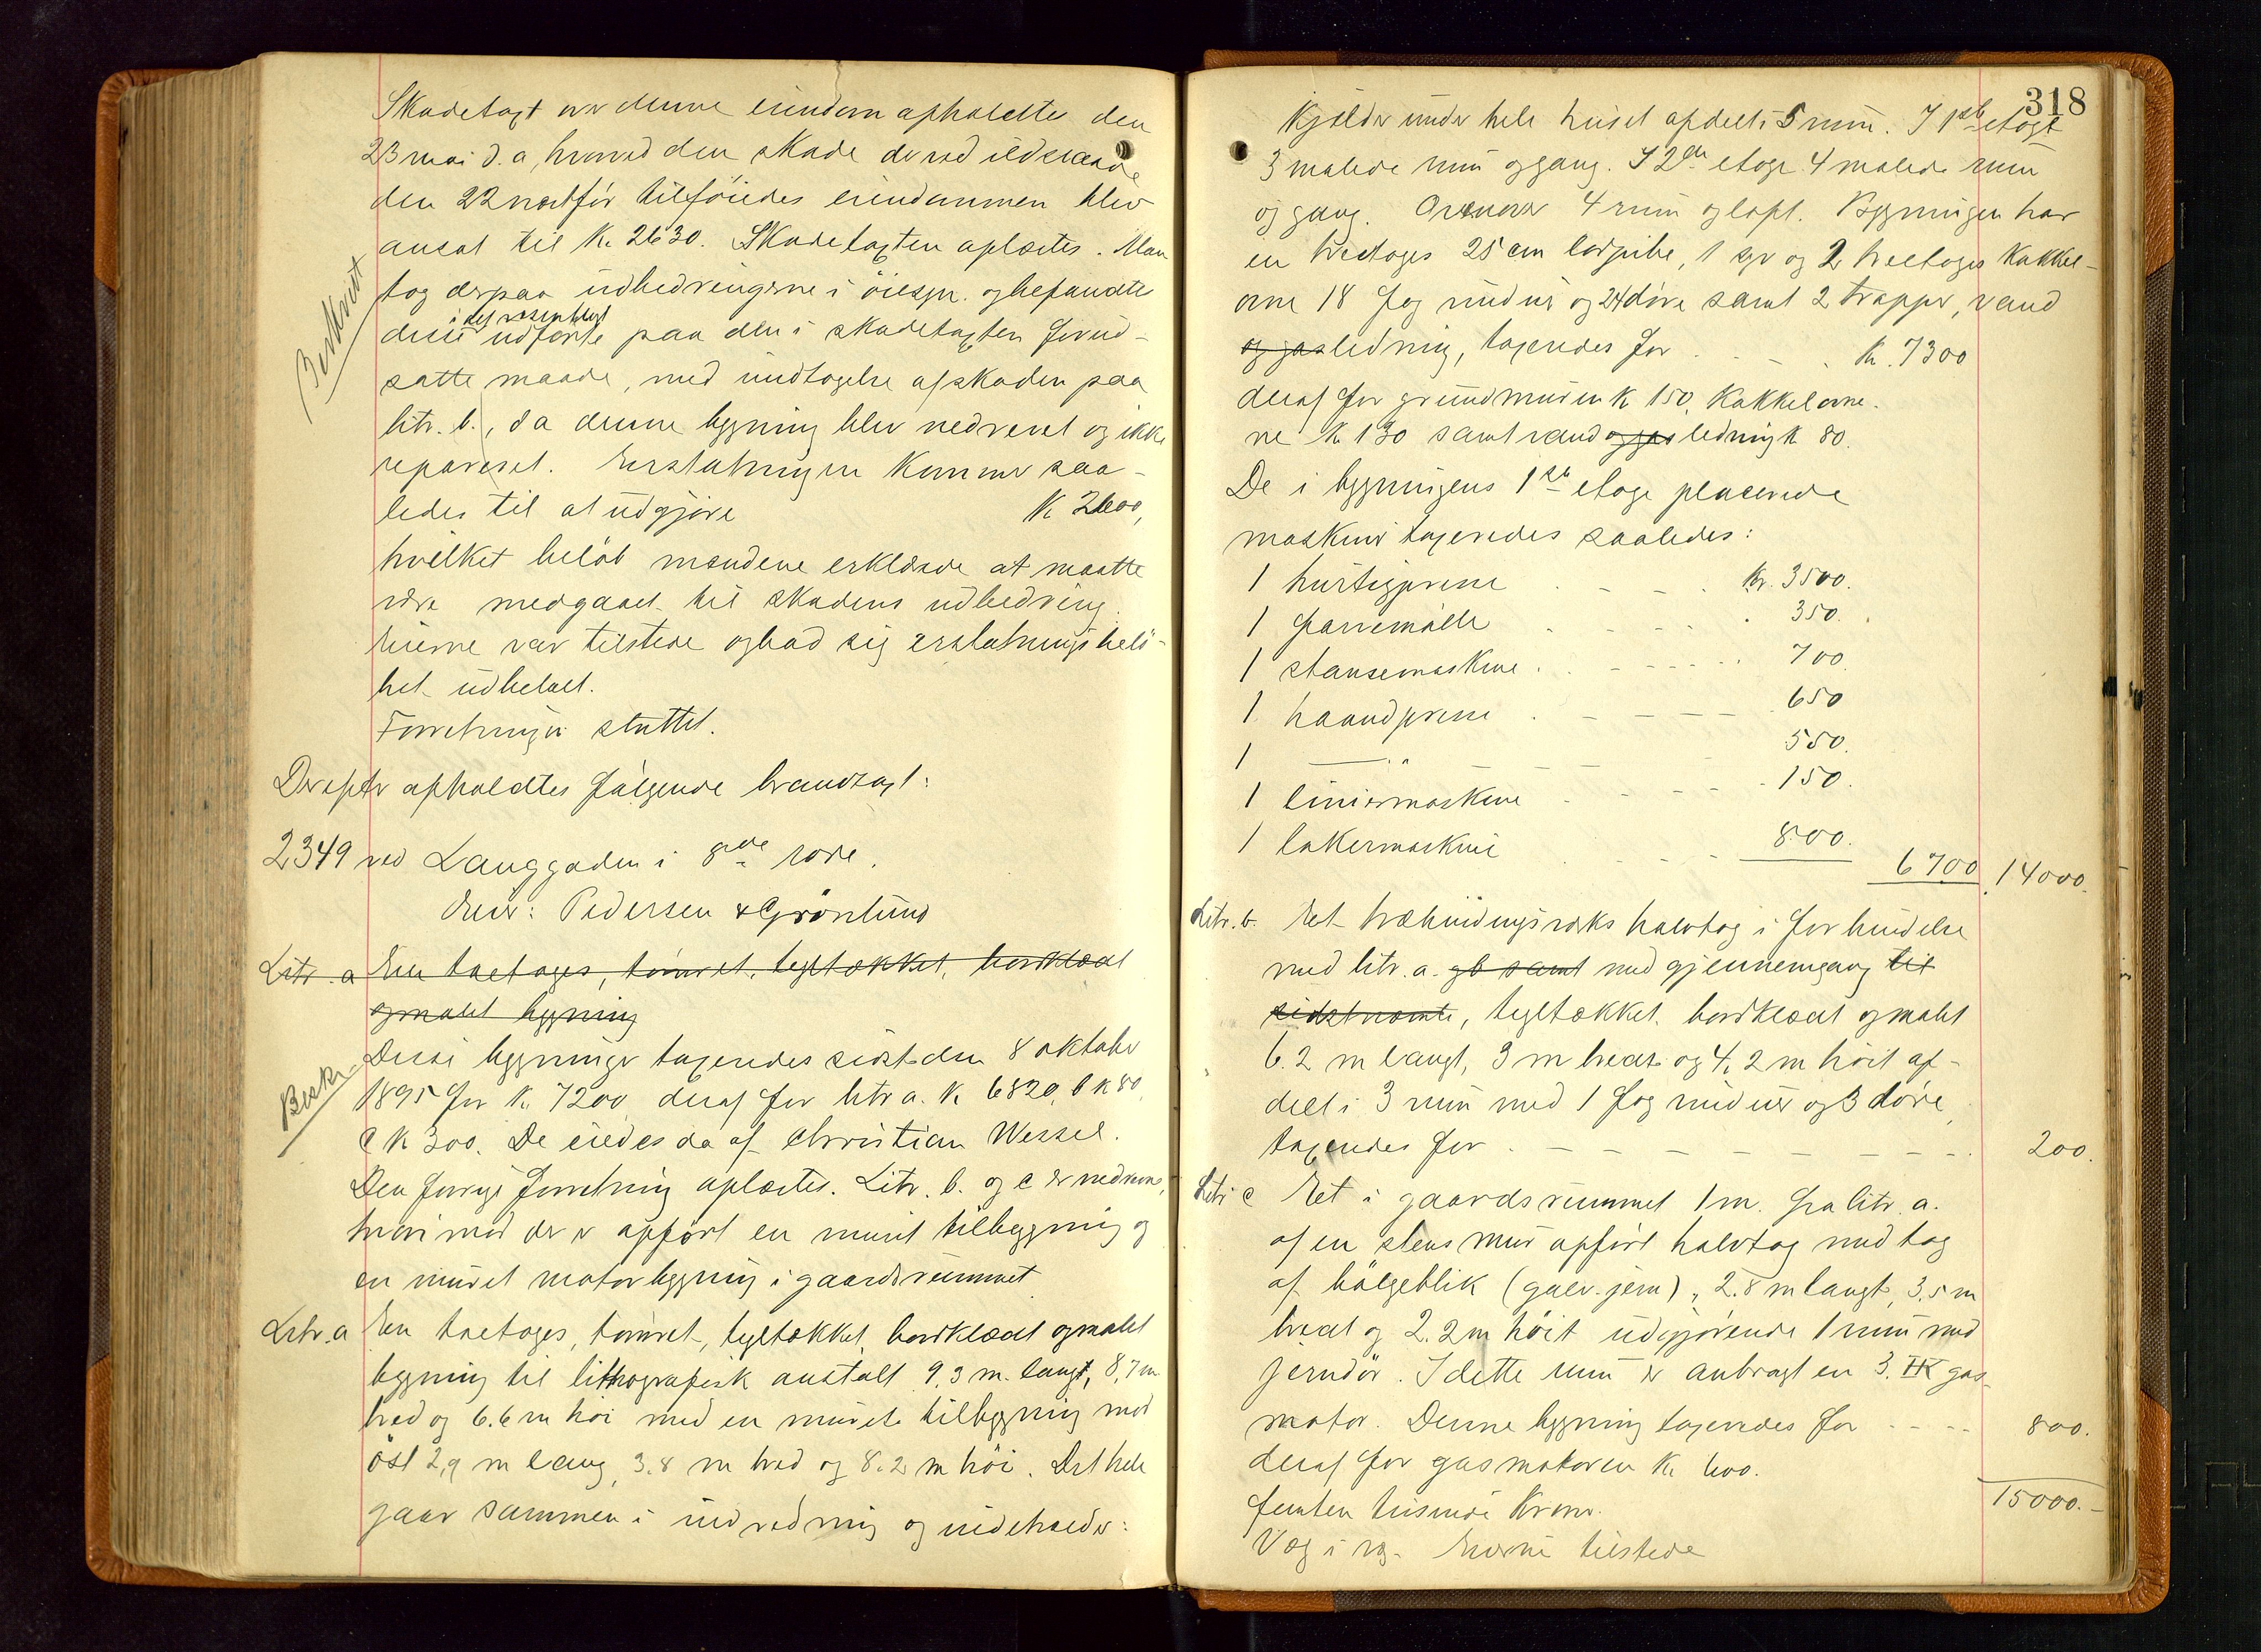 Skadetaxt over denne eiendom afholdtes den
23 mai d.a, hvorved den skade der ved ildsvaade
den 22 næstfør tilføiedes eiendommen blev
ansat til Kr. 2630. Skadetaxten oplæstes. Man
tog derpaa udbedringerne i øiesyn og befandt
i det væsentligst
disse udførte paa den i skadetaxten forud-
satte maade, med undtagelse af skaden paa
litr. b., da denne bygning blev nedrevet og ikke
repareret. Erstatningen kommer saa-
ledes til at udgjøre K 2600,
hvilket beløb mændene erklærede at maatte
være medgaaet til skadens udbedring.
Eierne var tilstede og bad sig erstatningsbelø-
bet udbetalt.
Forretningen sluttet.
Derefter afholdtes følgende brandtaxt:
2349 ved Langgaden i 8de rode.
Eier: Pedersen & Grönlund
Litr. a En toetages, tømret, tegltækket, bordklædt
og malet bygning
Disse bygninger taxeredes sidst den 8 oktober
1895 for K. 7200, deraf for litr a. K 6820, b K 80,
c K 300. De eiedes da af Christian Wessel.
Den forrige forretning oplæstes. Litr. b. og c er nedrevne,
hvorimod der er opført en muret tilbygning og
en muret motorbygning i gaardsrummet
Litr. a En toetages, tømret, tegltækket, bordklædt og malet
bygning til lithografisk anstalt 9,3 m. langt, 8,7 m
bred og 6.6 m høi med en murete tilbygning mod
øst 2,9 m lang, 3.8 m bred og 8.2 m høi. Det hele
gaar sammen i indredning og indeholder:
Beskrevet
Beskr.
318
Kjælder under hele huset afdelt i 5 rum. I 1ste etage
3 malede rum og gang. I 2den etage 4 malede rum
og gang. Ovenover 4 rum og loft. Bygningen har
en treetages 25 cm lørpibe, 1 spr og 2 treetages kakkel-
ovne 18 fag vinduer og 24 døre samt 2 trapper, vand
og gasledning, taxeredes for . . . Kr. 7300
deraf for grundmuren K 150, Kakkelovne-
ne K 130 samt vand og gas ledning K 80.
De i bygningens 1ste etage placerede
maskiner taxeredes saaledes:
1 hurtigpresse . - - . Kr. 3500.
1 farvemølle . - - . 350.
1 stansemaskine . - - - 700.
1 haandpresse . - - - 650
1 —„— - - - 550.
1 liniermaskine - - - 150.
1 lakermaskine . - - 800.
6700 14000.
Litr. b. Et træbindingsværks halvtag i forbindelse
med litr. a. og b samt med gjennemgang til
sidstnævnte, tegltækket, bordklædt og malet
6.2 m langt, 3 m bredt og 4,2 m høit af-
delt i 3 rum med 1 fag vinduer og 3 døre,
taxeredes for . - - - - - - 200.
Litr c Et i gaardsrummet 1 m. fra litr. a.
af en stens mur opført halvtag med tag
af bølgeblik (galv. jern), 2.8 m langt, 3.5 m
bredt og 2.2 m høit udgjørende 1 rum med
jerndør. I dette rum er anbragt en 3. HK gas-
motor. Denne bygning taxeredes for - - - - 800.
deraf for gasmotoren K 600.
15000.-
femten tusinde Kroner.
V og i og. Eierne tilstede